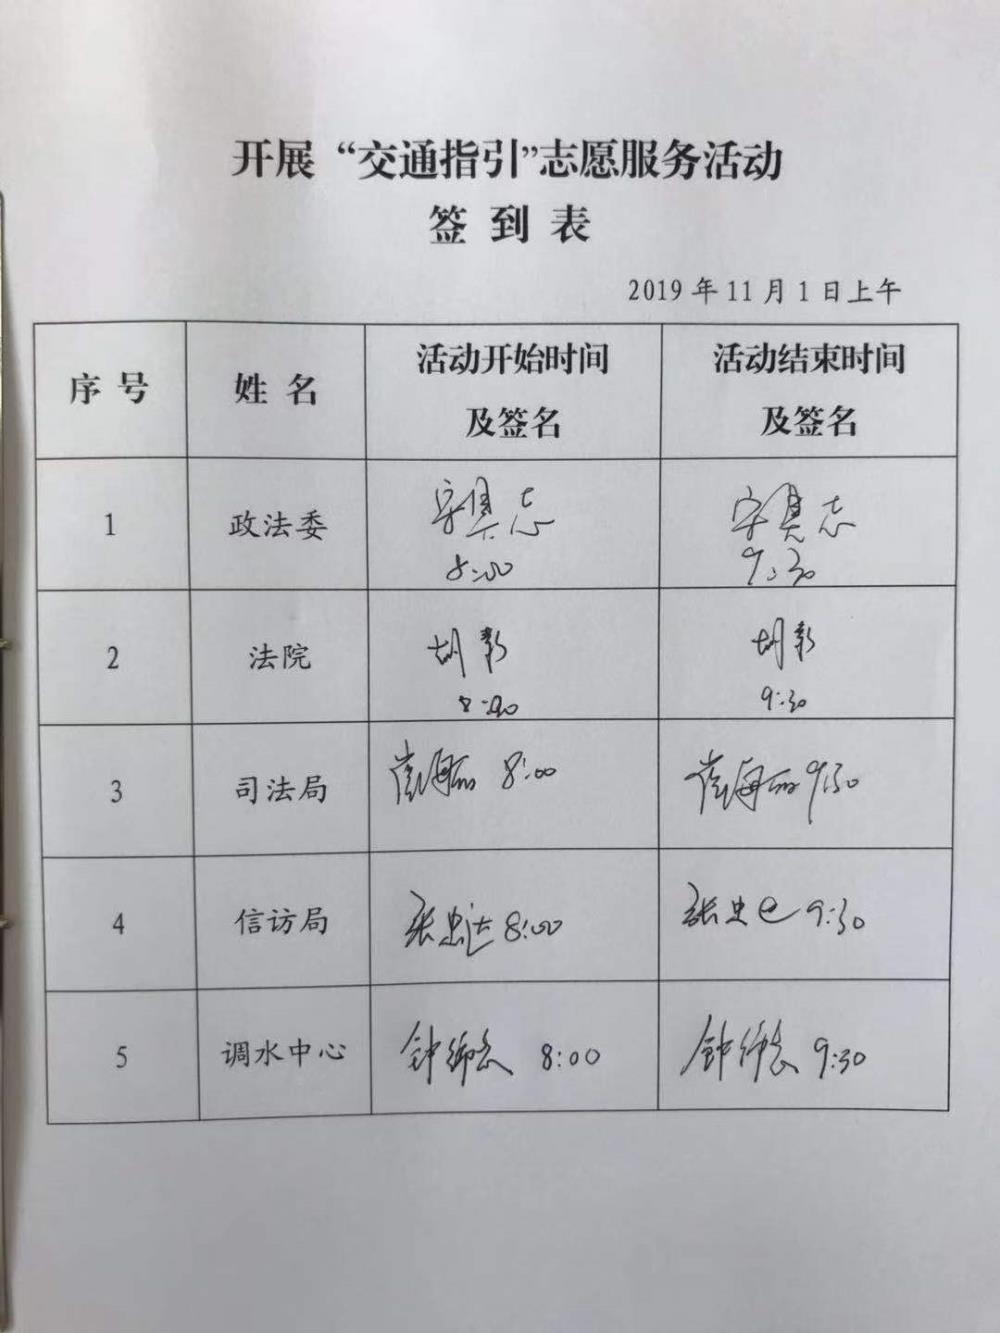 开展“交通指引”志愿服务活动
签到表
2019年11月1日上午
序号 姓名 活动开始时间 活动结束时间
及签名 及签名
1 政法委
8:00 9:30
2 法院 胡彰 胡彰
8:00 9:30
3 司法局 8:00 9:30
4 信访局 张忠 8:00 张忠 9:30
5 调水中心 钟 8:00 钟 9:30